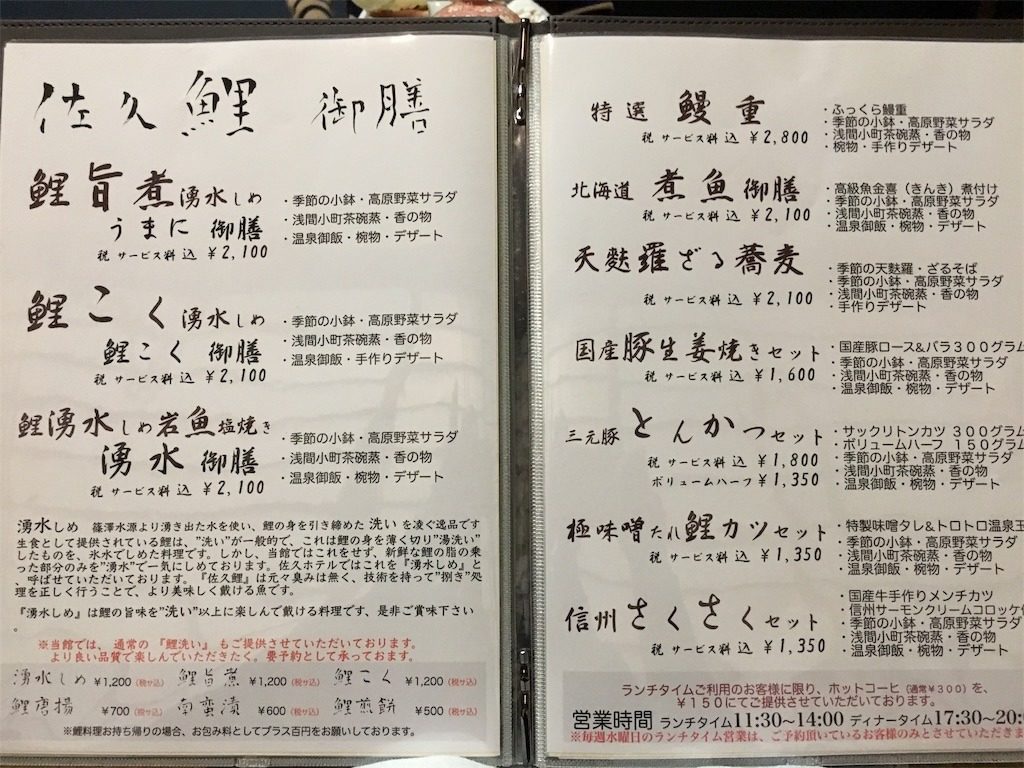 佐久鯉 御膳
鯉旨煮湧水しめ
うまに 御膳
税 サービス料 込 ¥2,100
・季節の小鉢・高原野菜サラダ
・浅間小町茶碗蒸・香の物
・温泉御飯・椀物・デザート
鯉こく湧水しめ
鯉こく 御膳
税 サービス料 込 ¥2,100
・季節の小鉢・高原野菜サラダ
・浅間小町茶碗蒸・香の物
・温泉御飯・手作りデザート
鯉湧水しめ岩魚塩焼き
湧水 御膳
税 サービス料 込 ¥2,100
・季節の小鉢・高原野菜サラダ
・浅間小町茶碗蒸・香の物
・温泉御飯・椀物・デザート
湧水しめ 篠澤水源より湧き出た水を使い、鯉の身を引き締めた 洗い を凌ぐ逸品です
生食として提供されている鯉は、"洗い"が一般的で、これは鯉の身を薄く切り"湯洗い"
したものを、氷水でしめた料理です。しかし、当館ではこれをせず、新鮮な鯉の脂の乗
った部分のみを"湧水"で一気にしめております。佐久ホテルではこれを『湧水しめ』と
、呼ばせていただいております。『佐久鯉』は元々臭みは無く、技術を持って"捌き"処
理を正しく行うことで、より美味しく戴ける魚です。
『湧水しめ』は鯉の旨味を"洗い"以上に楽しんで戴ける料理です、是非ご賞味下さい
。
※当館では、 通常の 『鯉洗い』 もご提供させていただいております。
より良い品質で楽しんでいただきたく。要予約として承っております。
湧水しめ ¥1,200 (税サ込) 鯉旨煮 ¥1,200 (税サ込) 鯉こく ¥1,200 (税サ込)
鯉唐揚 ¥700 (税サ込) 南蛮漬 ¥600 (税サ込) 鯉煎餅 ¥500 (税サ込)
※鯉料理お持ち帰りの場合、お包み料としてプラス百円をお願いしております。
特選 鰻重
税 サービス料 込 ¥2,800
・ふっくら鰻重
・季節の小鉢・高原野菜サラダ
・浅間小町茶碗蒸・香の物
・椀物・手作りデザート
北海道 煮魚御膳
税 サービス料 込 ¥2,100
・高級魚金喜（きんき）煮付け
・季節の小鉢・高原野菜サラダ
・浅間小町茶碗蒸・香の物
・温泉御飯・椀物・デザート
天麩羅ざる蕎麦
税 サービス料 込 ¥2,100
・季節の天麩羅・ざるそば
・季節の小鉢・高原野菜サラダ
・浅間小町茶碗蒸・香の物
・手作りデザート
国産豚生姜焼きセット
税 サービス料 込 ¥1,600
・国産豚ロース&バラ３００グラム
・季節の小鉢・高原野菜サラダ
・浅間小町茶碗蒸・香の物
・温泉御飯・椀物・デザート
三元豚 とんかつセット
税 サービス料 込 ¥1,800
ボリュームハーフ ¥1,350
・サックリトンカツ ３００グラム
・ボリュームハーフ １５０グラム
・季節の小鉢・高原野菜サラダ
・浅間小町茶碗蒸・香の物
・温泉御飯・椀物・デザート
極味噌たれ鯉カツセット
税 サービス料 込 ¥1,350
・特製味噌タレ&トロトロ温泉玉
・季節の小鉢・高原野菜サラダ
・浅間小町茶碗蒸・香の物
・温泉御飯・椀物・デザート
信州さくさくセット
税 サービス料 込 ¥1,350
・国産牛手作りメンチカツ
・信州サーモンクリームコロッケ
・季節の小鉢・高原野菜サラダ
・浅間小町茶碗蒸・香の物
・温泉御飯・椀物・デザート
ランチタイムご利用のお客様に限り、ホットコーヒ（通常¥３００）を、
¥１５０にてご提供させていただいています。
営業時間 ランチタイム11:30～14:00 ディナータイム17:30～20:0
※毎週水曜日のランチタイム営業は、ご予約頂いているお客様のみとさせていただきま